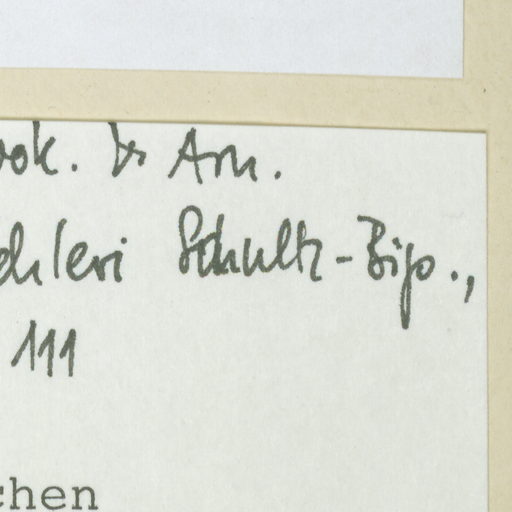 ook. & Arn.
chleri Schultz-Bip.,
111
chen